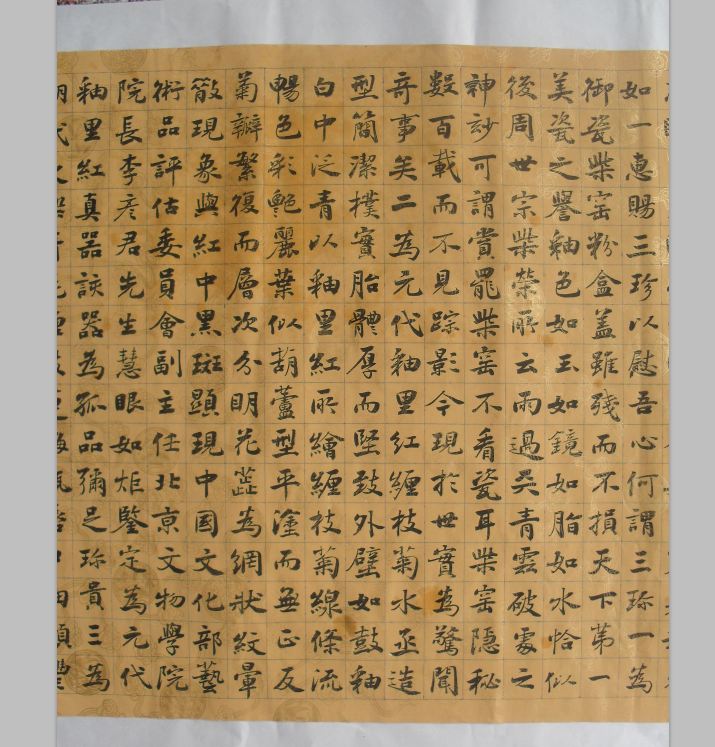 如一惠賜三珍以慰吾心何謂三珎一為
御瓷柴窑粉盒盖雖殘而不損天下第一
美瓷之譽釉色如玉如鏡如脂如水恰似
後周世宗柴榮所云雨過天青雲破處之
神妙可謂賞罷柴窑不看瓷耳柴窑隐秘
數百載而不見踪影今現於世實為驚聞
奇事矣二為元代釉里红纏枝菊水丞造
型簡潔樸實胎體厚而堅致外壁如鼓釉
白中泛青以釉里紅所繪纏枝菊線條流
暢色彩艷麗葉似葫蘆型平塗而無正反
菊瓣繁復而層次分明花蕊為網狀紋暈
散現象與紅中黑斑顯現中國文化部藝
術品評估委員會副主任北京文物學院
院長李彦君先生慧眼如炬鑒定為元代
釉里紅真器該器為孤品彌足珎貴三為